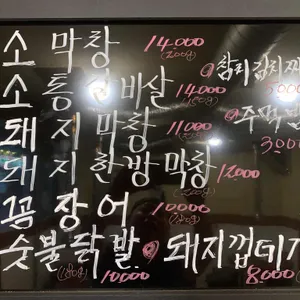 소 막창 14.000
(200g)
참치김치찌
소 통갈비살 14.000
주먹밥
돼지 막창 11.000
3.000
돼지 한방 막창 12.000
꼼장어 10000
숯불닭발 10000
돼지껍데기 8.000